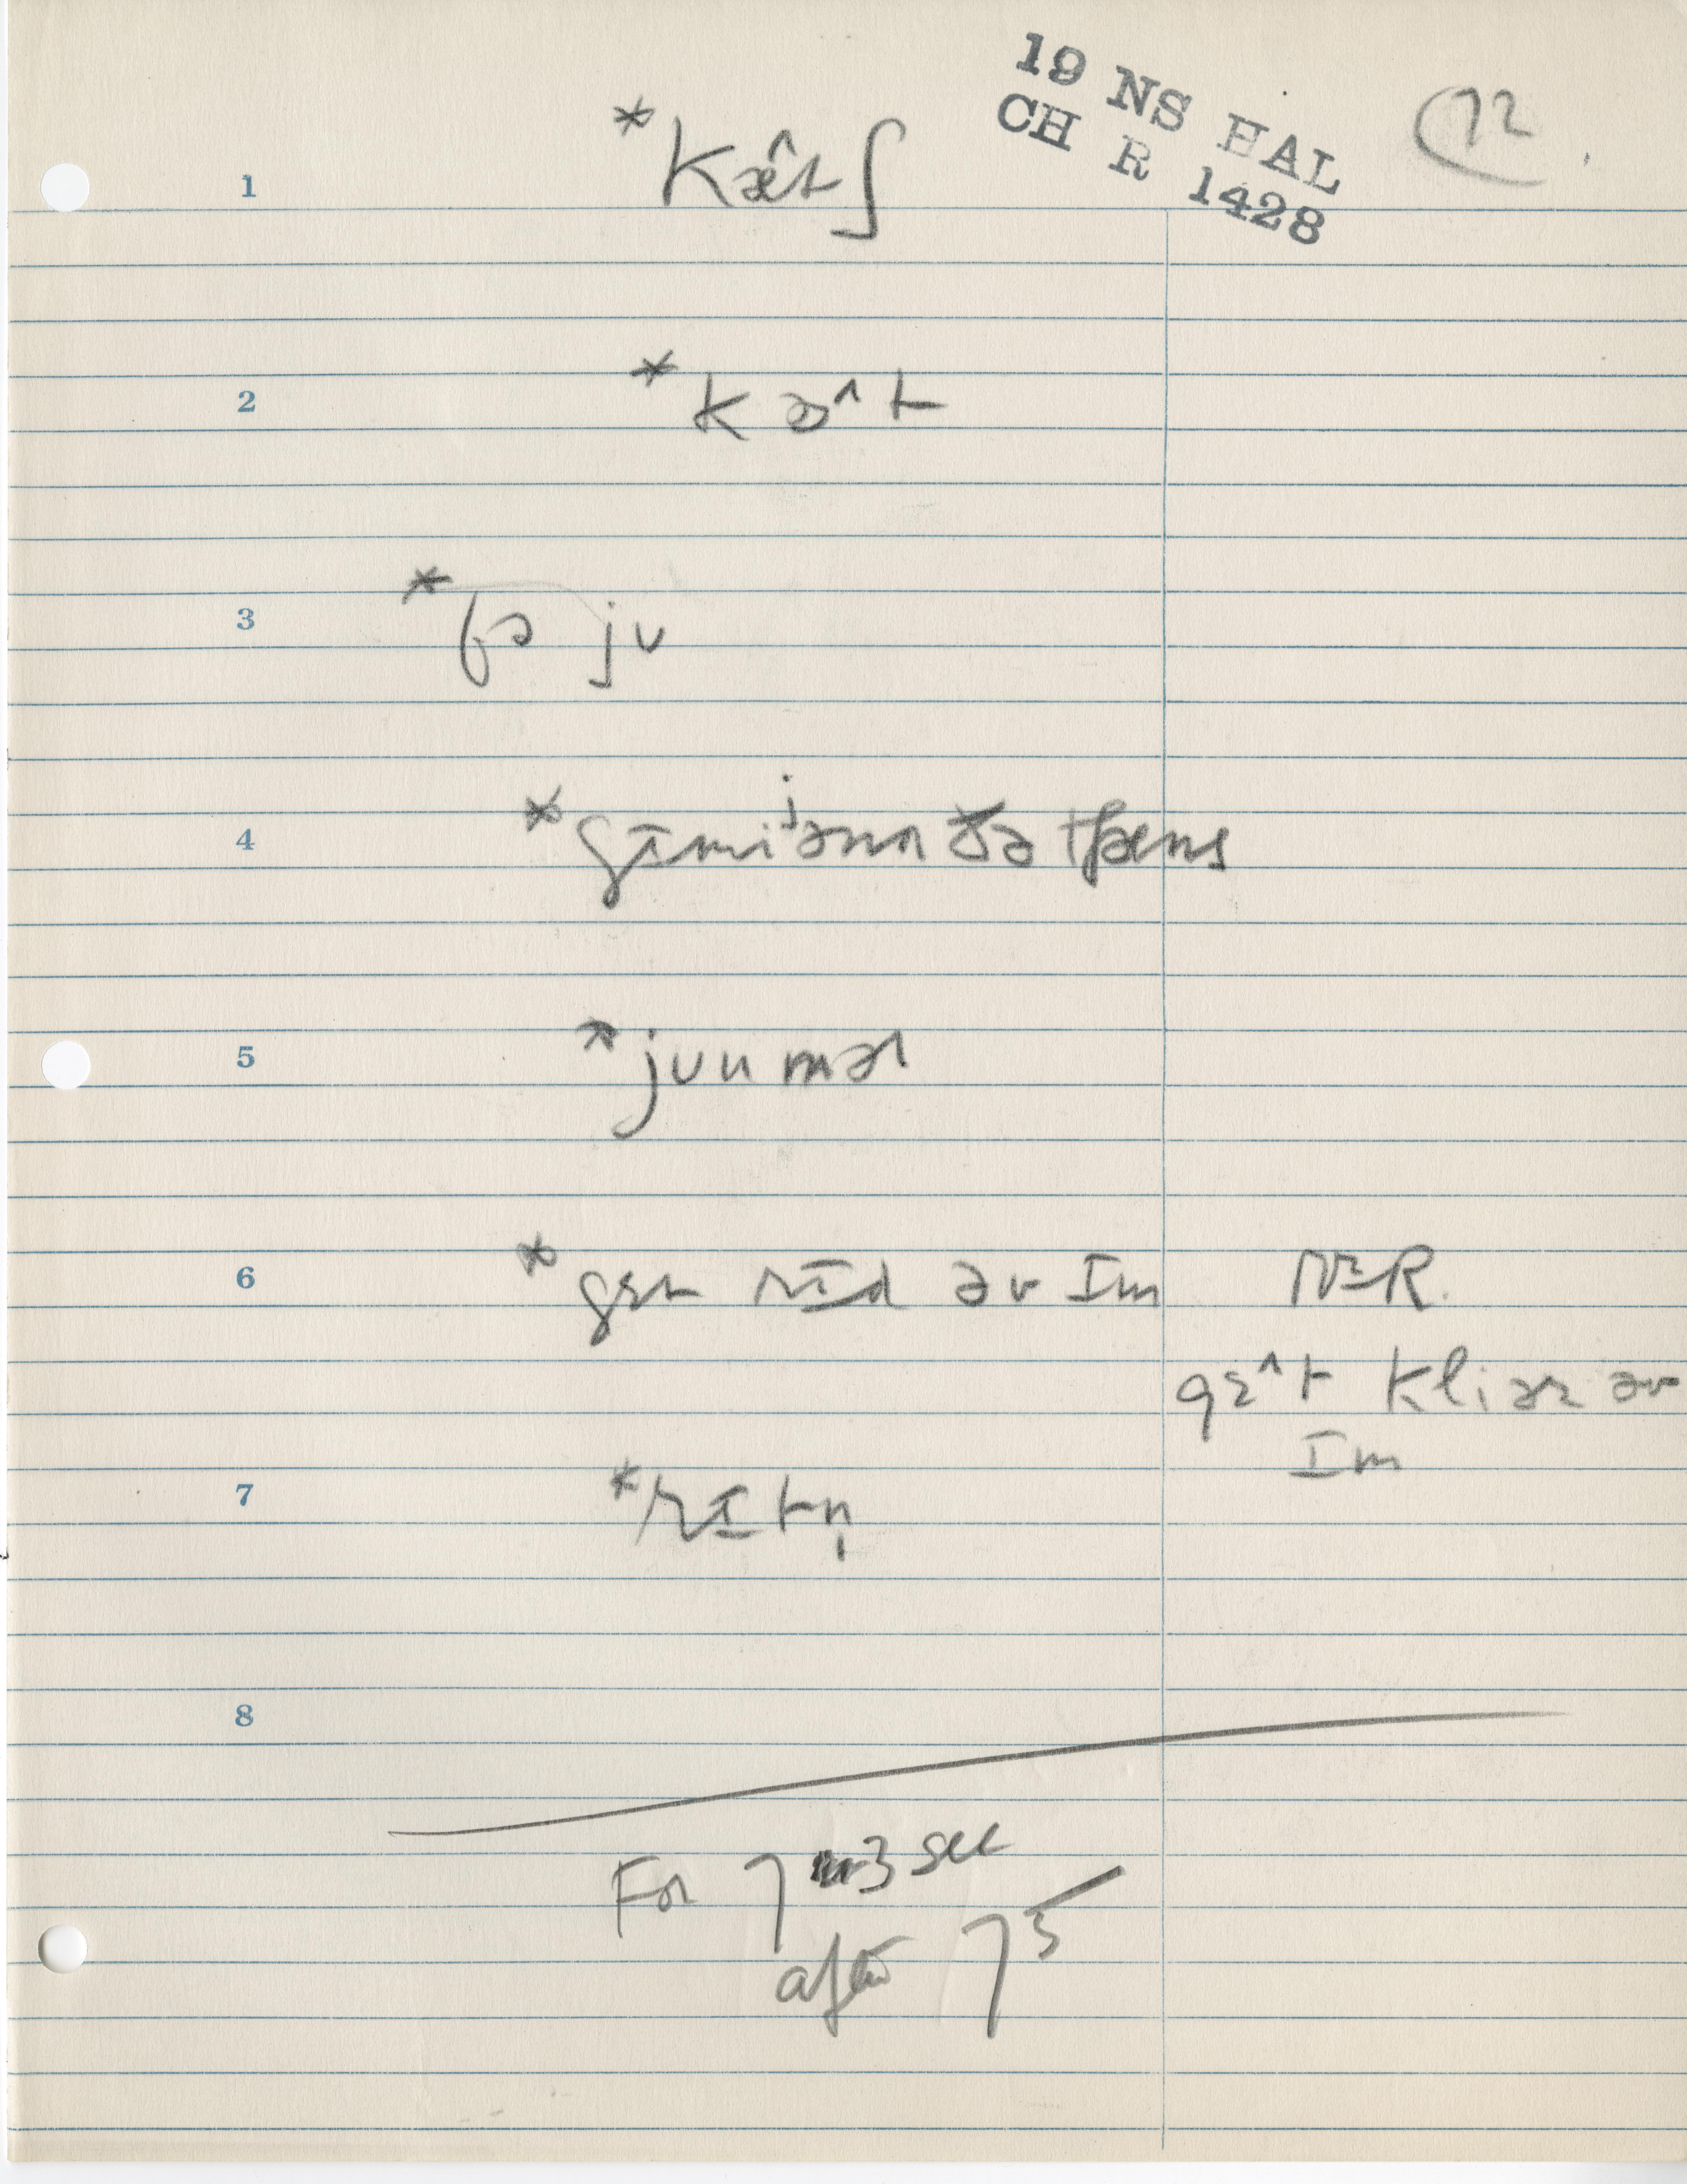 19 NS HAL
CH R 1428
72
1 *kæ̂tʃ
2 *kæ^t
3 *fə ju
4 *gɪmiʲəm ðə tʃæns
5 *juumər
6 *gɛt rɪd əv ɪm NER.
gɛ^t kliər əv
ɪm
7 *rɪtn̩
8
For 7 3 sec
after 75